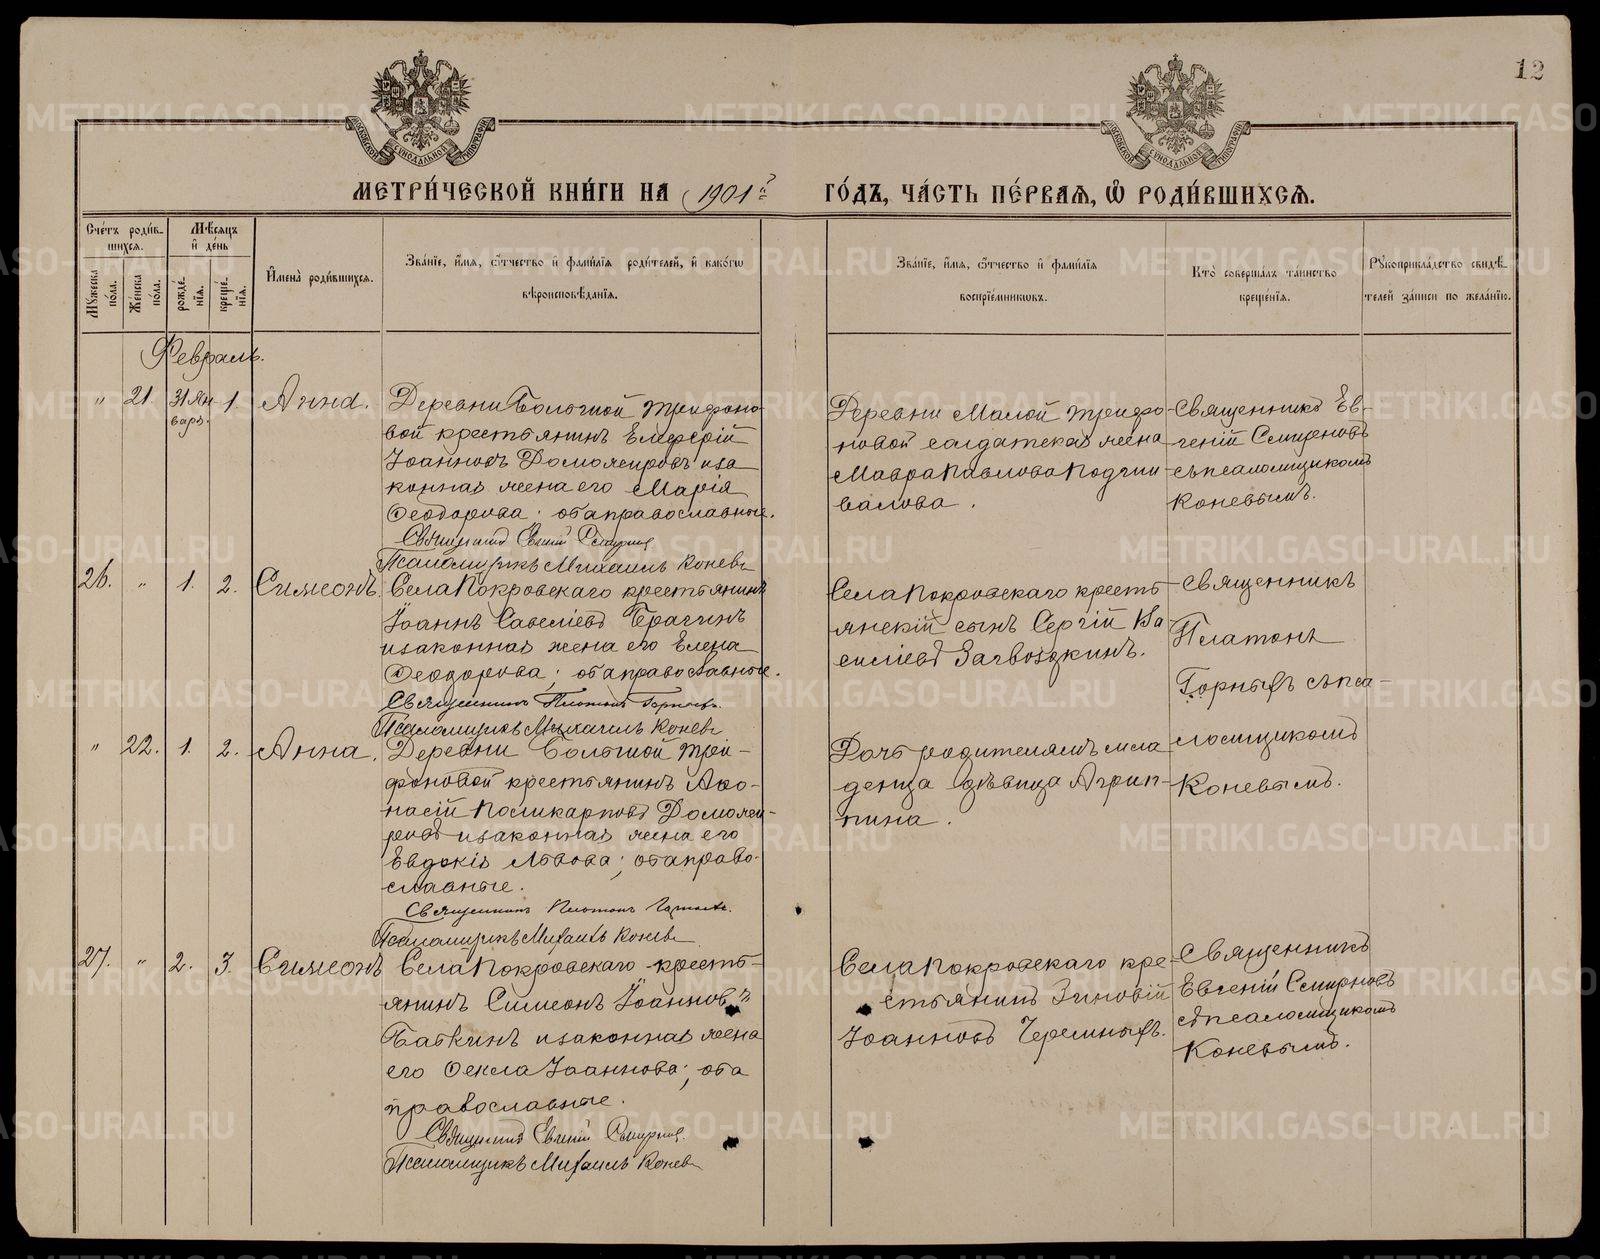 12
МОСКОВСКОЙ СѴНОДАЛЬНОЙ ТИПОГРАФІИ
МОСКОВСКОЙ СѴНОДАЛЬНОЙ ТИПОГРАФІИ
МЕТРИ́ЧЕСКОЙ КНИ́ГИ НА 1901й
ГО́ДЪ, ЧА́СТЬ ПЕ́РВАѦ, Ѡ҆ РОДИ́ВШИХСѦ.
Сче́тъ роди́в-
шихсѧ.
Мꙋжеска по́ла.
Же́нска по́ла.
Мѣ́сѧцъ
и҆ де́нь
рожде́-
нїѧ.
креще́-
нїѧ.
И҆мена̀ роди́вшихсѧ.
Зва́нїе, и҆́мѧ, ѻ҆́тчество и҆ фами́лїѧ роди́телей, и҆ како́гѡ
вѣроисповѣ́данїѧ.
Зва́нїе, и҆́мѧ, ѻ҆́тчество и҆ фами́лїѧ
воспрїе́мниковъ.
Кто̀ соверша́лъ та́инство
креще́нїѧ.
Рꙋкоприкла́дство свидѣ́-
телей за́писи по жела́нїю.
Февраль.
" 21. 31 Ян 1. Анна.
варь.
Деревни Большой Трифоно-
вой крестьянинъ Елферій
Іоанновъ Доможировъ иза
конная жена его Марія
Ѳеодорова; оба православные.
Священникъ Евгеній Смирновъ
Псаломщикъ Михаилъ Коневъ
Деревни Малой Трифо-
новой салдатская жена
Мавра Павлова Подчи
валова.
Священникъ Ев-
геній Смирновъ
съ псаломщикомъ
Коневымъ.
26. " 1. 2. Симеонъ.
Села Покровскаго крестьянинъ
Іоаннъ Савеліевъ Брагинъ
и законная жена его Елена
Ѳеодорова; оба православные.
Священникъ Платонъ Горныхъ
Псаломщикъ Михаилъ Коневъ
Села Покровскаго кресть
янскій сынъ Сергій Ва
силіевъ Загвоздкинъ.
Священникъ
Платонъ
Горныхъ съ пса-
ломщикомъ
Коневымъ.
" 22. 1. 2. Анна.
Деревни Большой Три-
фоновой крестьянинъ Аѳо-
насій Поликарповъ Доможи-
ровъ и законная жена его
Евдокія Львова; оба право-
славные.
Священникъ Платонъ Горныхъ.
Псаломщикъ Михаилъ Коневъ
Дочь родителямъ мла
денца дѣвица Агрип-
пина.
27. " 2. 3. Симеонъ
Села Покровскаго кресть-
янинъ Симеонъ Іоанновъ
Бабкинъ и законная жена
его Ѳекла Іоаннова; оба
православные.
Священникъ Евгеній Смирновъ.
Псаломщикъ Михаилъ Коневъ
Села Покровскаго кре-
стьянинъ Зиновій
Іоанновъ Черемныхъ.
Священникъ
Евгеній Смирновъ
съ псаломщикомъ
Коневымъ.